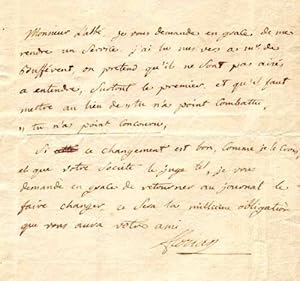 Monsieur l'abbé je vous demande en grace, de me
rendre un Service. j'ai lu mes vers a mr. de
on pretend qu'ils ne sont pas aisés
a entendre, surtout le premier, et qu'il faut
mettre au lieu de „ tu n'a point combattu
„ tu n'a point concouru,
Si ce changement est bon, comme je le crois,
et que votre Société le juge tel, je vous
demande en grace de retourner au journal le
faire changer. ce Sera la millieme obligation
que vous aura votre ami
florian